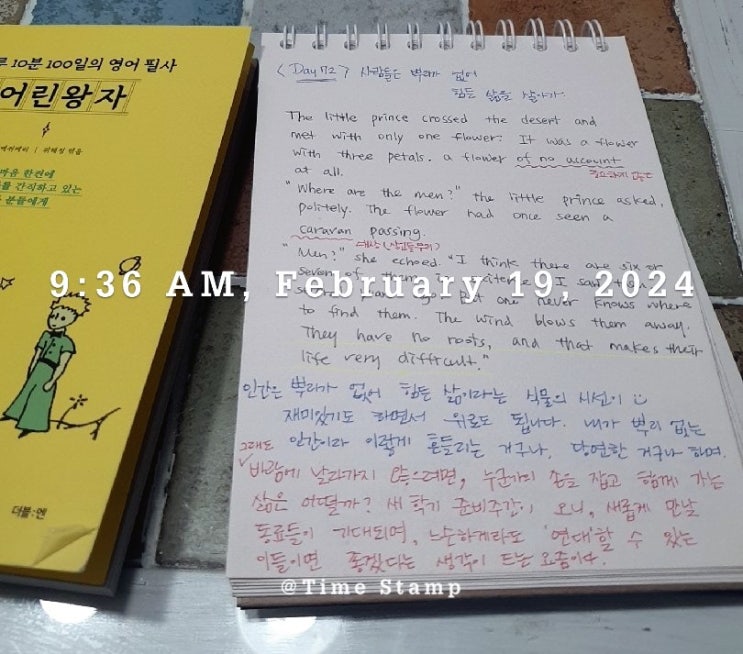 10분 100일의 영어 필사
어린왕자
마음 한켠에
간직하고 있는
분들에게
더블:엔
<Day 72> 사람들은 뿌리가 없어
힘든 삶을 살아가.
The little prince crossed the desert and
met with only one flower. It was a flower
with three petals. a flower of no account
at all.
"Where are the men?" the little prince asked,
politely. The flower had once seen a
caravan passing.
"Men?" she echoed. "I think there are six or
seven of them in I saw
9:36 AM, February 19, 2024
but one never knows where
to find them. The wind blows them away.
They have no roots, and that makes their
life very difficult."
인간은 뿌리가 없어 힘든 삶이라는 식물의 시선이
재미있기도 하면서 위로도 됩니다. 내가 뿌리 없는
인간이라 이렇게 흔들리는 거구나, 당연한 거구나 하며.
그래도
바람에 날라가지 않으려면, 누군가의 손을 잡고 함께 가는
삶은 어떨까? 새 학기 준비주간이 오니, 새롭게 만날
동료들이 기대되며, 느슨하게라도 '연대'할 수 있는
이들이면 좋겠다는 생각이 드는 요즘이다.
@Time Stamp